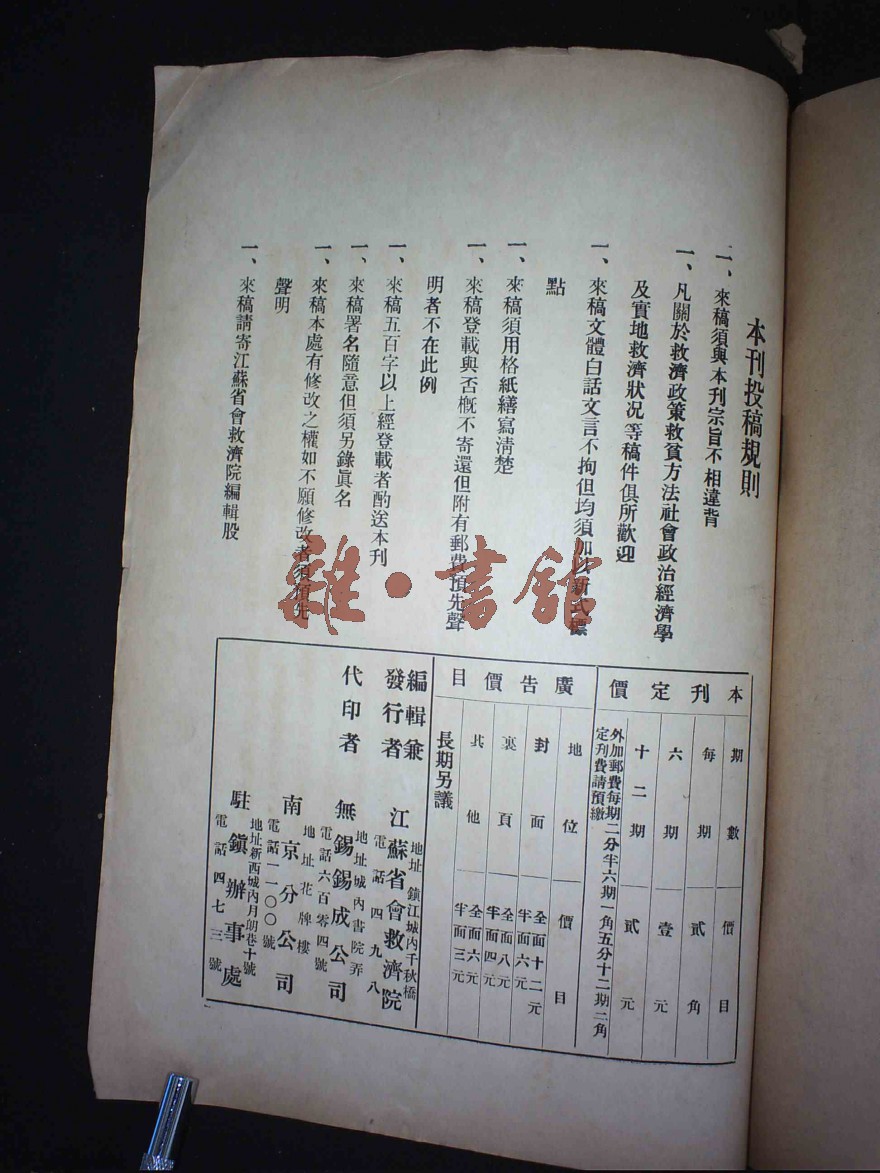 本刊投稿規則
一、來稿須與本刊宗旨不相違背
一、凡關於救濟政策救貧方法社會政治經濟學
及實地救濟狀况等稿件俱所歡迎
一、來稿文體白話文言不拘但均須加以新式標
點
一、來稿須用格紙繕寫淸楚
一、來稿登載與否槪不寄還但附有郵費預先聲
明者不在此例
一、來稿五百字以上經登載者酌送本刊
一、來稿署名隨意但須另錄眞名
一、來稿本處有修改之權如不願修改者須預先
聲明
一、來稿請寄江蘇省會救濟院編輯股
雜·書館
本刊定價
期數 價目
每期 貳角
六期 壹元
十二期 貳元
外加郵費每期二分半六期一角五分十二期二角
定刊費請預繳
廣告價目
地位 價目
封面 全面十二元 半面六元
裏頁 全面八元 半面四元
其他 全面六元 半面三元
長期另議
編輯兼發行者 江蘇省會救濟院
地址 鎮江城內千秋橋
電話 四九八
代印者 無錫錫成公司
地址城內書院弄
電話六百零四號
南京分公司
地址花牌樓
電話一一〇〇號
駐鎮辦事處
地址新西城內月朗巷十號
電話四七三號